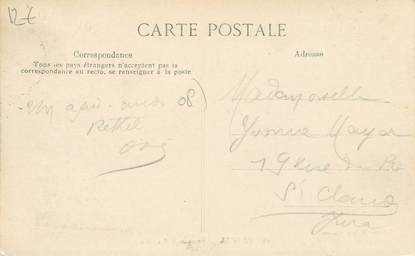 12€
CARTE POSTALE
Correspondance
Tous les pays étrangers n'acceptent pas la
correspondance au recto, se renseigner à la poste
Adresse
08
Rethel
Mademoiselle
Yvonne Mayor
19 rue du
St Claude
Jura